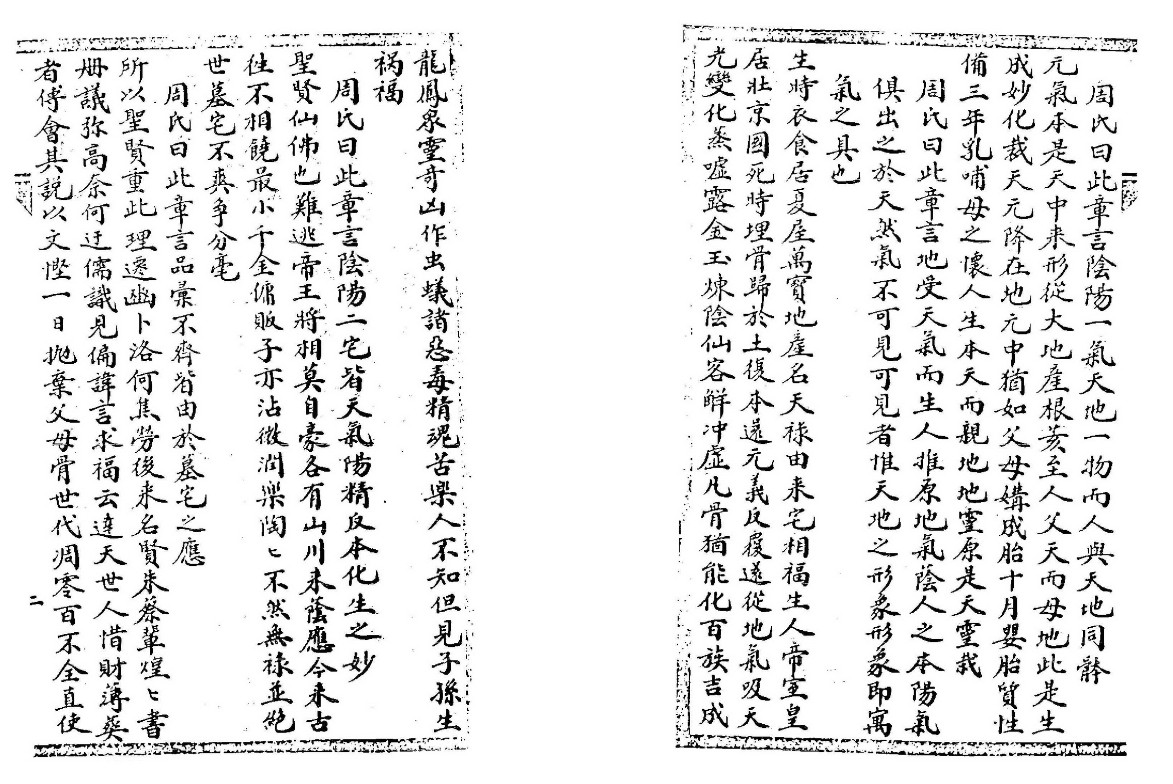 周氏曰此章言陰陽一氣天地一物而人與天地同體
元氣本是天中来形從大地產根荄至人父天而母地此是生
成妙化裁天元降在地元中猶如父母媾成胎十月嬰胎質性
備三年乳哺母之懷人生本天而親地地靈原是天靈栽
周氏曰此章言地受天氣而生人推原地氣蔭人之本陽氣
俱出之於天然氣不可見可見者惟天地之形象形象即寓
氣之具也
生時衣食居夏屋萬寶地產名天祿由来宅相福生人帝室皇
居壯京國死時埋骨歸於土復本還元義反覆遂從地氣吸天
光變化蒸噓露金玉煉陰仙客解冲虛凡骨猶能化百族吉成
龍鳳衆靈奇凶作虫蟻諸惡毒精魂苦樂人不知但見子孫生
祸福
周氏曰此章言陰陽二宅皆天氣陽精反本化生之妙
聖賢仙佛也難逃帝王將相莫自豪各有山川来蔭應今来古
徃不相饒最小千金傭販子亦沾微潤樂陶〻不然無祿並絕
世墓宅不爽爭分毫
周氏曰此章言品彙不齊皆由於墓宅之應
所以聖賢重此理遷豳卜洛何焦勞後来名賢朱蔡輩煌〻書
册議弥高奈何迂儒識見偏諱言求福云達天世人惜財薄葵
者傅會其説以文慳一日抛棄父母骨世代凋零百不全直使
二